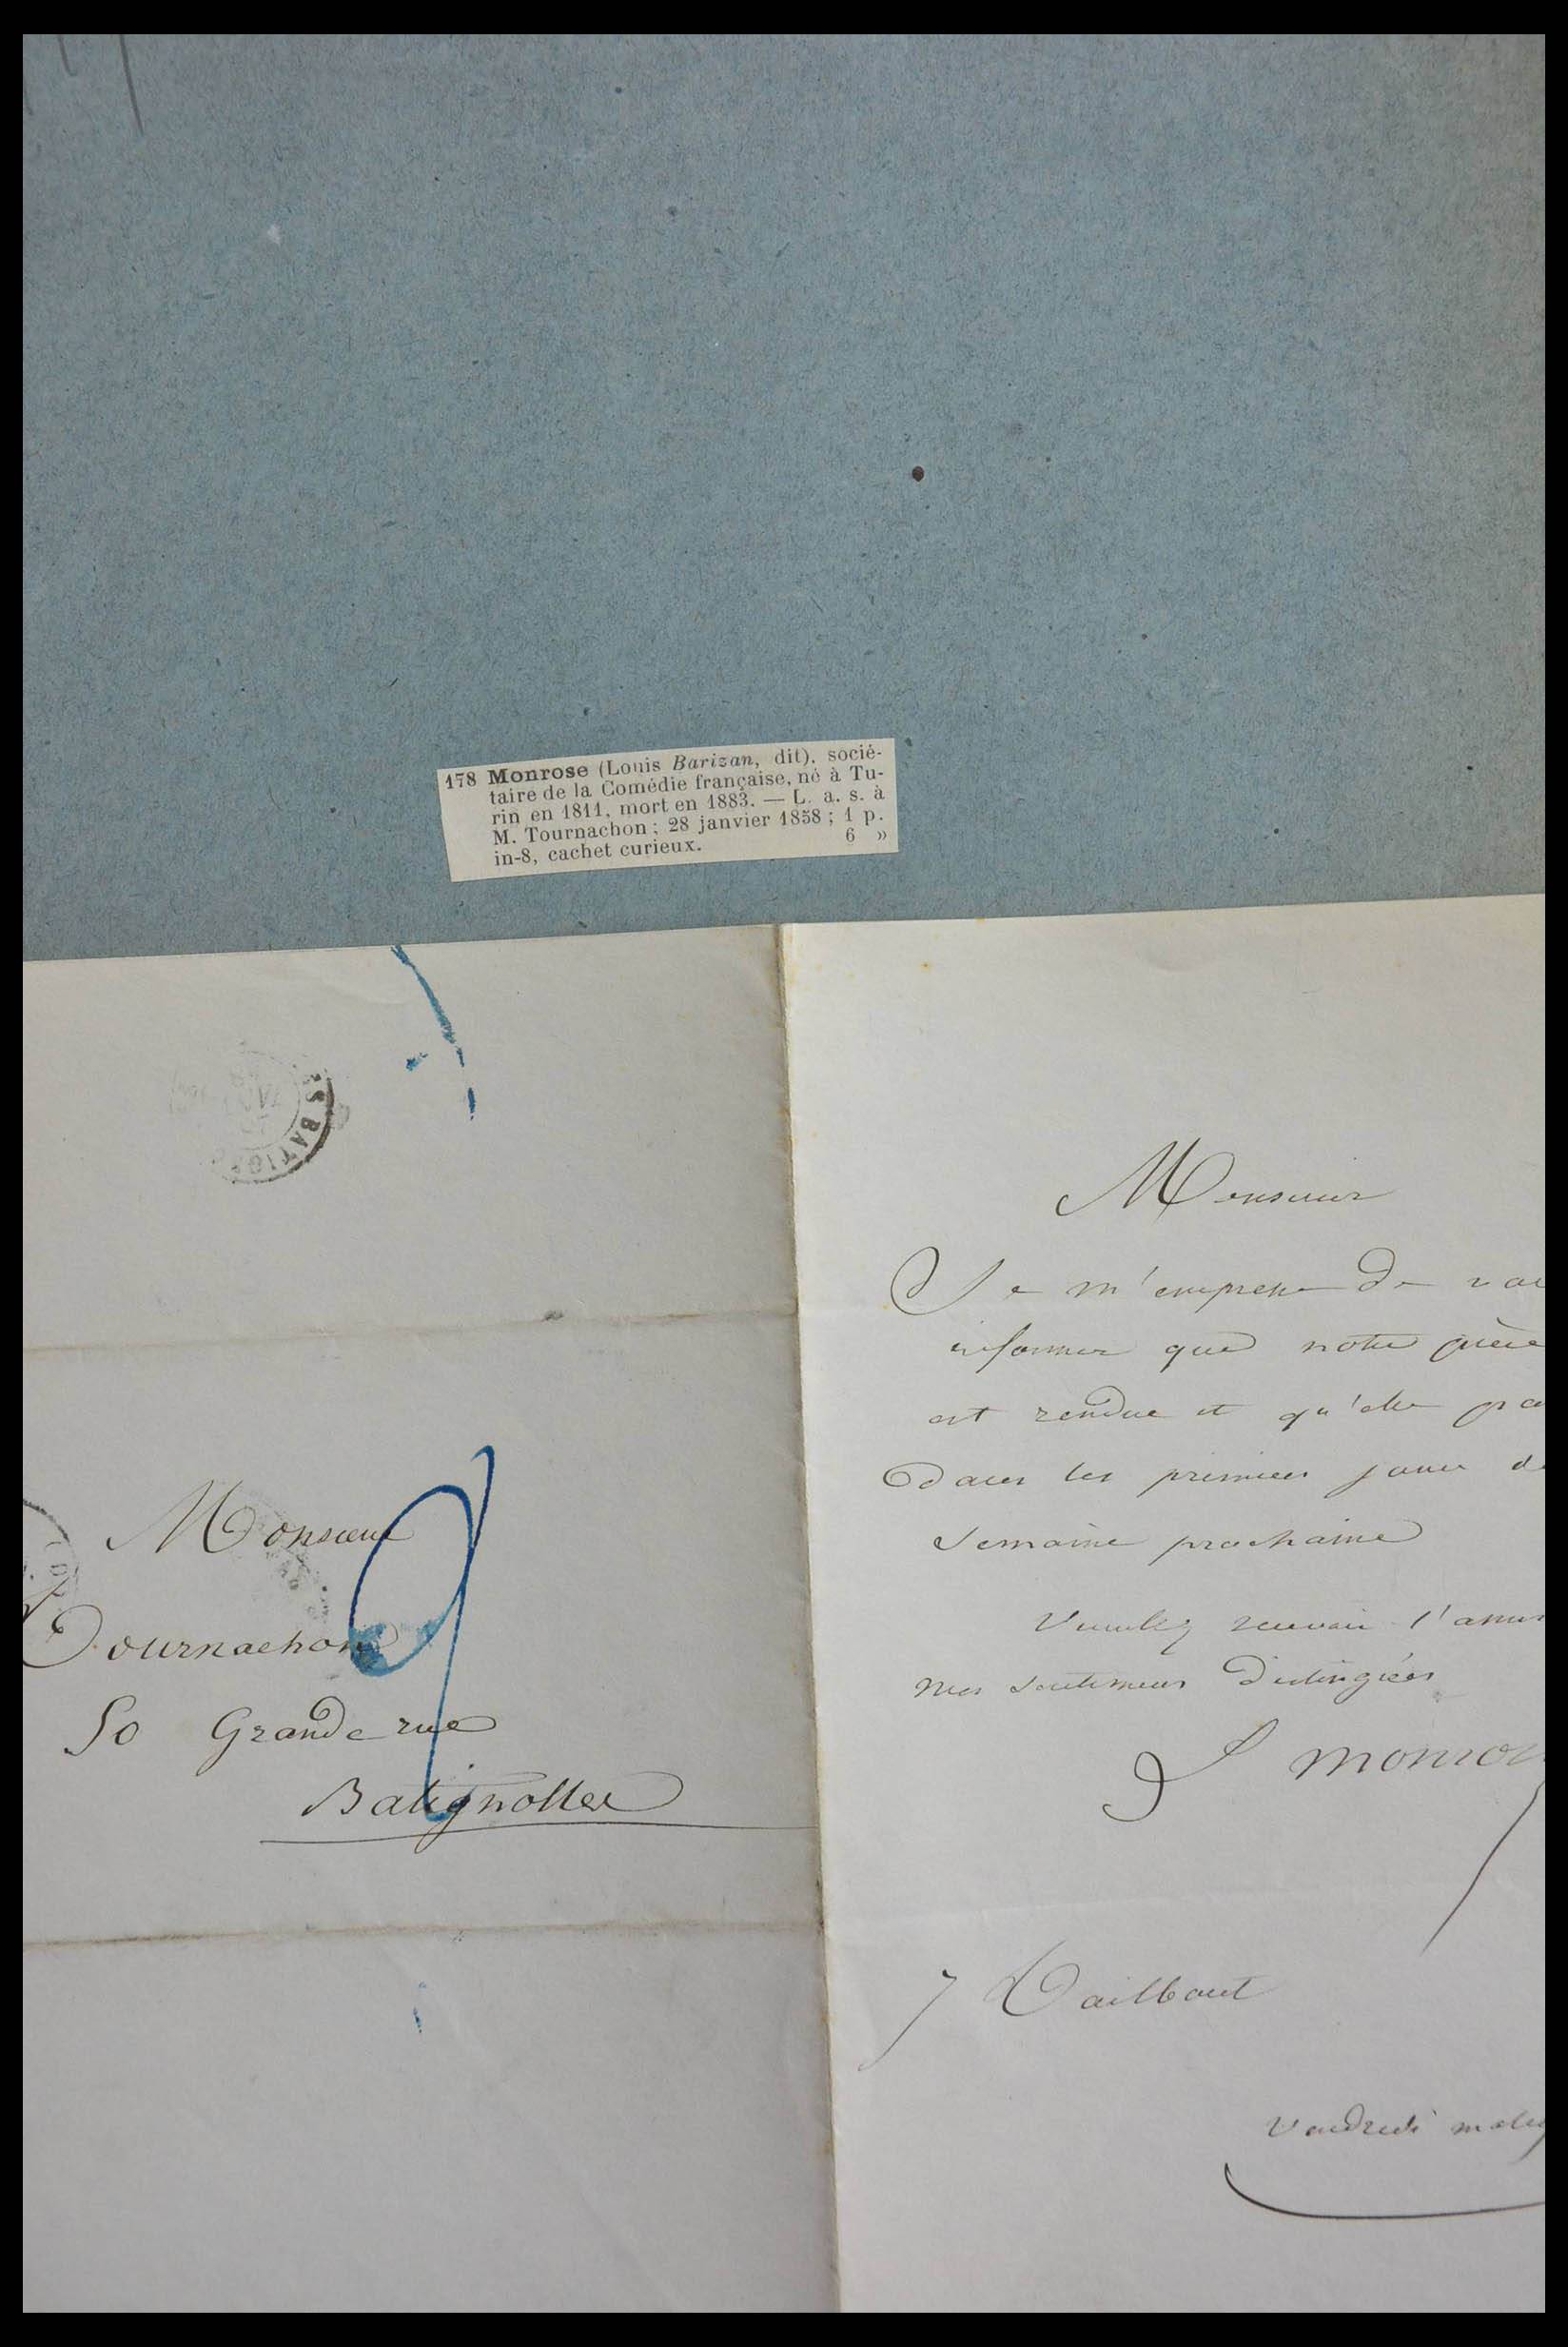 178 Monrose (Louis Barizan, dit), socié-
taire de la Comédie française, né à Tu-
rin en 1811, mort en 1883. — L. a. s. à
M. Tournachon; 28 janvier 1858; 1 p.
in-8, cachet curieux. 6 »
S BATIG
Monsieur
Tournachon
50 Grande rue
Batignolles
Monsieur
Je m'empresse de vou
informer que notre pièce
est rendue et qu'elle pa
dans les premiers jours de
semaine prochaine
Veuillez recevoir l'assur
mes sentiments distingués
L monros
7 Taitbout
Vendredi